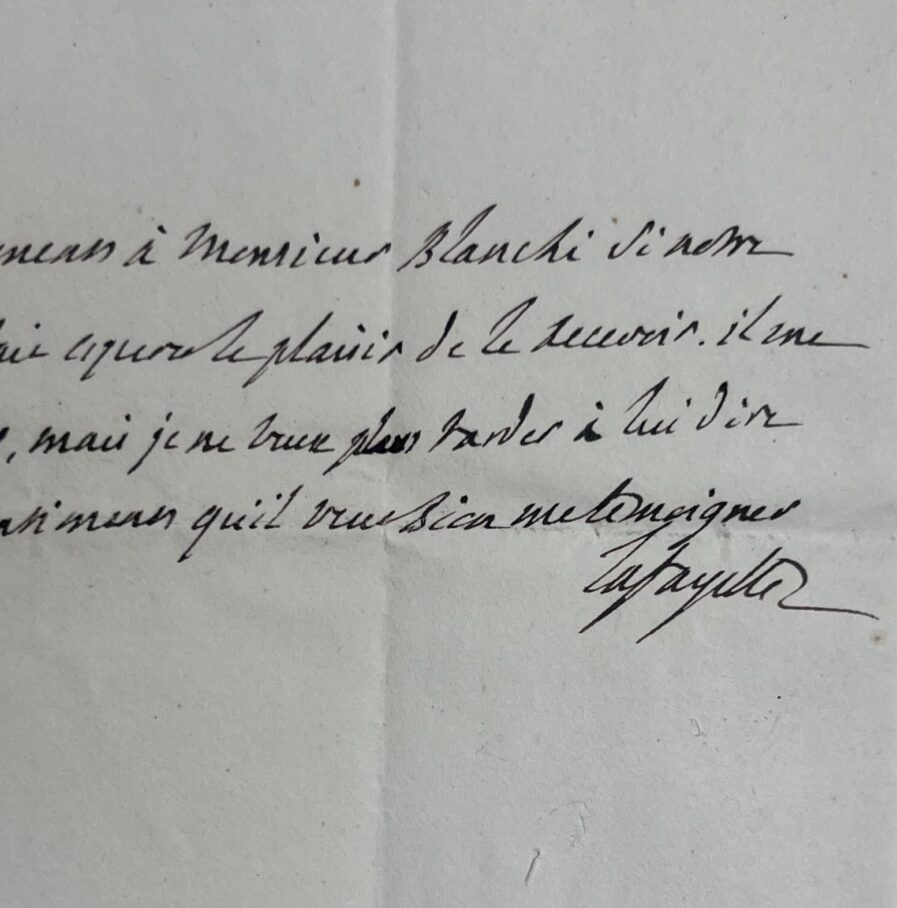 à Monsieur Bianchi si notre
le plaisir de le recevoir. il me
, mais je ne veux plus tarder à lui dire
qu'il veut bien me temoigner
Lafayette